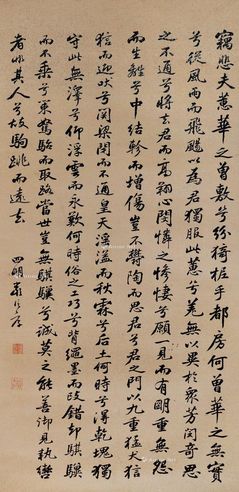 竊悲夫蕙華之曾敷兮紛猗柅乎都房何曾華之無實
兮從風雨而飛颺以為君獨服此蕙兮羌無以異於衆芳閔奇思
之不通兮將去君而高翔心閔憐之慘悽兮願一見而有明重無怨
而生離兮中結軫而增傷豈不鬱陶而思君兮君之門以九重猛犬狺
狺而迎吠兮關梁閉而不通皇天淫溢而秋霖兮后土何時兮得乾塊獨
守此無澤兮仰浮雲而永歎何時俗之工巧兮背繩墨而改錯却騏驥
而不乘兮策駑駘而取路當世豈無騏驥兮誠莫之能善御見執轡
者非其人兮故駒跳而遠去
四明